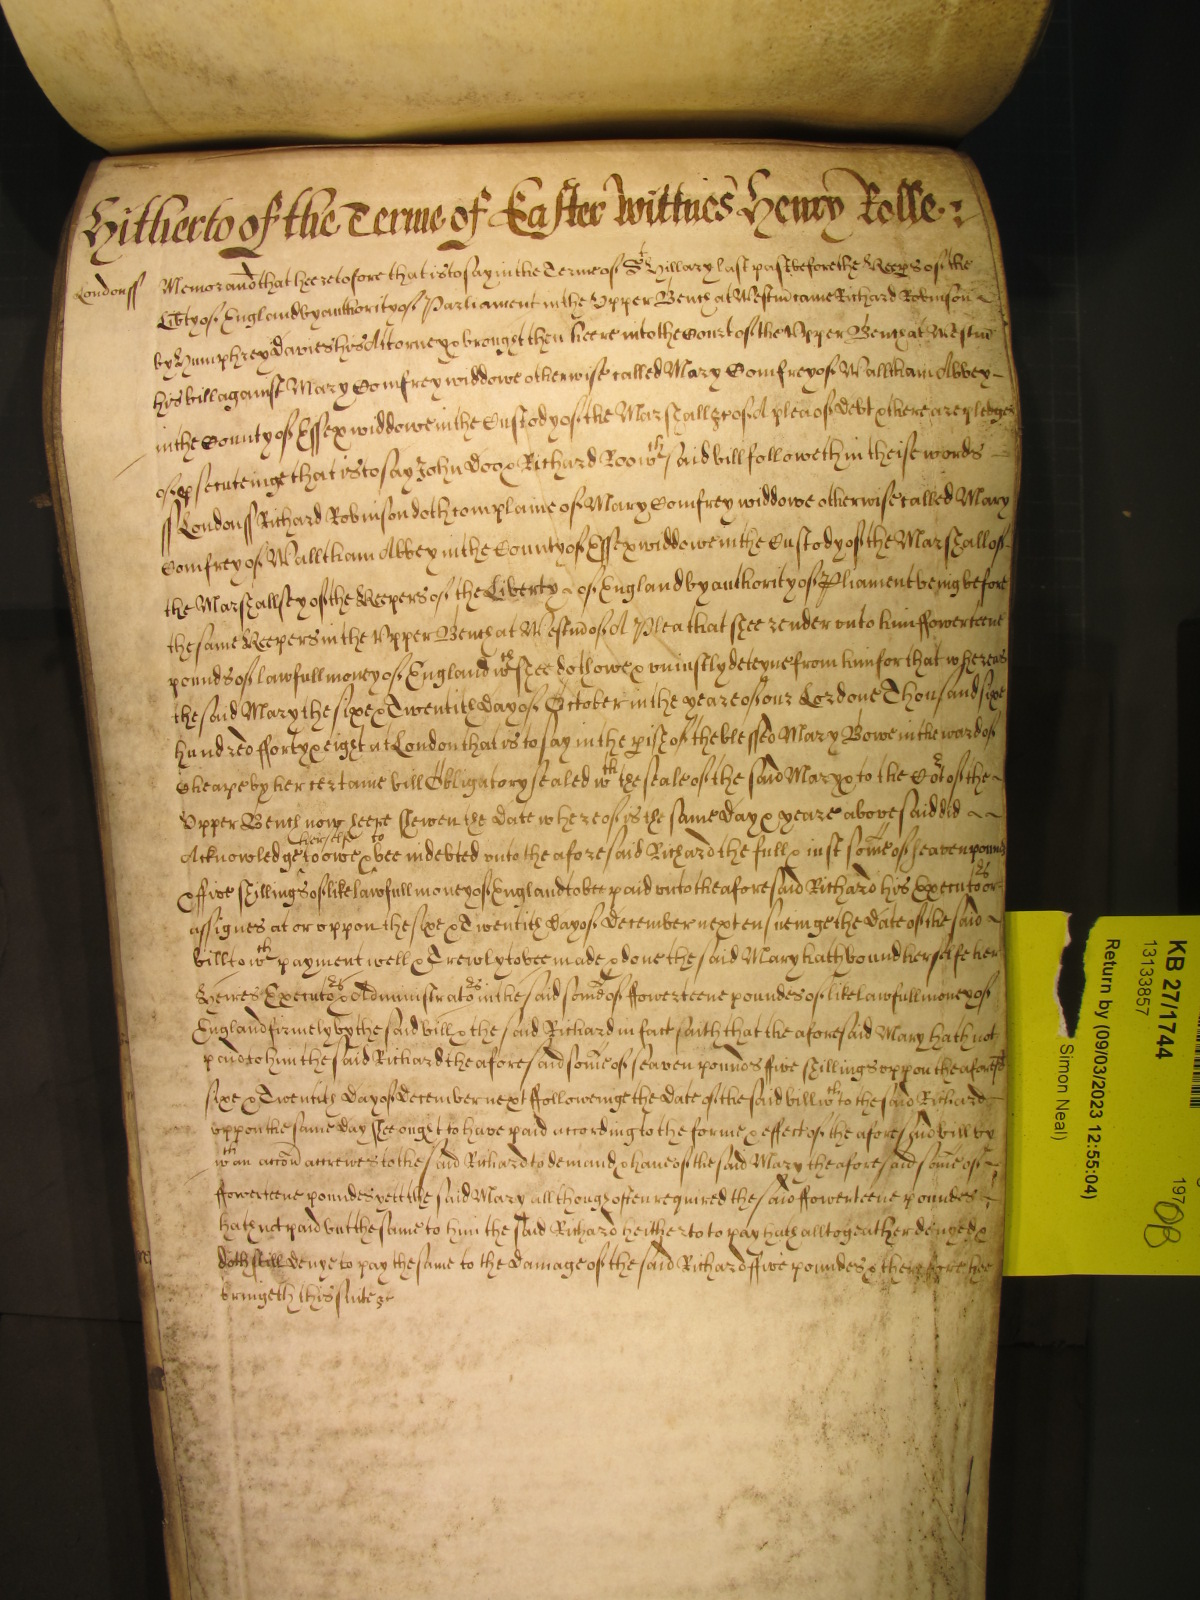 Hitherto of the Terme of Easter Wittnes Henry Rolle :
Londonss Memorand that heeretofore that is to say in the Terme of St Hillary last past before the Keeps of the
Libty of England by authority of Parliament in the Upper Bench at Westm came Richard Robinson
by Humphrey Davies his Attorney & brought then heere into the Court of the Upper Bench at Westm
his bill against Mary Comfrey widdowe otherwise called Mary Comfrey of Walltham Abbey
in the County of Essex widdowe in the Custody of the Marshall &c of A plea of debt & there are pledges
of psecuteinge that is to say John Doo & Richard Roo wch said bill followeth in theise words
ss Londonss Richard Robinson doth complaine of Mary Comfrey widdowe otherwise called Mary
Comfrey of Walltham Abbey in the County of Essex widdowe in the Custody of the Marshall of
the Marshallsey of the Keepers of the Liberty of England by authority of Pliament being before
the same Keepers in the Upper Bench at Westm of A Plea that shee render unto him ffowerteene
pounds of lawfull money of England wch shee doth owe & uniustly deteyne from him for that whereas
the said Mary the sixe & Twentith day of October in the yeare of our Lord one Thousand sixe
hundred fforty & eight at London that is to say in the pish of the blessed Mary Bowe in the ward of
Cheape by her certaine bill Obligatory sealed wth the seale of the said Mary & to the Cot of the
Upper Bench now heere shewen the date whereof is the same day & yeare above said did
Acknowledge herselfe to owe & to bee indebted unto the aforesaid Richard the full & iust some of seaven pounds
& ffive shillings of like lawfull money of England to bee paid unto the aforesaid Richard his Executors or
assignes at or uppon the sixe & Twentith day of December next ensueinge the date of the said
bill to wch payment well & Trewly to bee made & done the said Mary hath bound herselfe her
Heires Executors & Administrators in the said some of ffowerteene poundes of like lawfull money of
England firmely by the said bill & the said Richard in fact saith that the aforesaid Mary hath not
paid to him the said Richard the aforesaid some of seaven pounds ffive shillings uppon the aforesd
sixe & Twentith day of December next ffolloweinge the date of the said bill wch to the said Richard
uppon the same day shee ought to have paid according to the forme & effect of the aforesaid bill by
wch an accon accrewes to the said Richard to demand & have of the said Mary the aforesaid some of
ffowerteene poundes yett the said Mary allthough often required the said ffowerteene poundes
hath not paid but the same to him the said Richard heitherto to pay hath alltogeather denyed &
doth still denye to pay the same to the damage of the said Richard ffive poundes & therefore hee
bringeth this suite &c
KB 27/1744
13133857
Return by (09/03/2023 12:55:04)
Simon Neal)